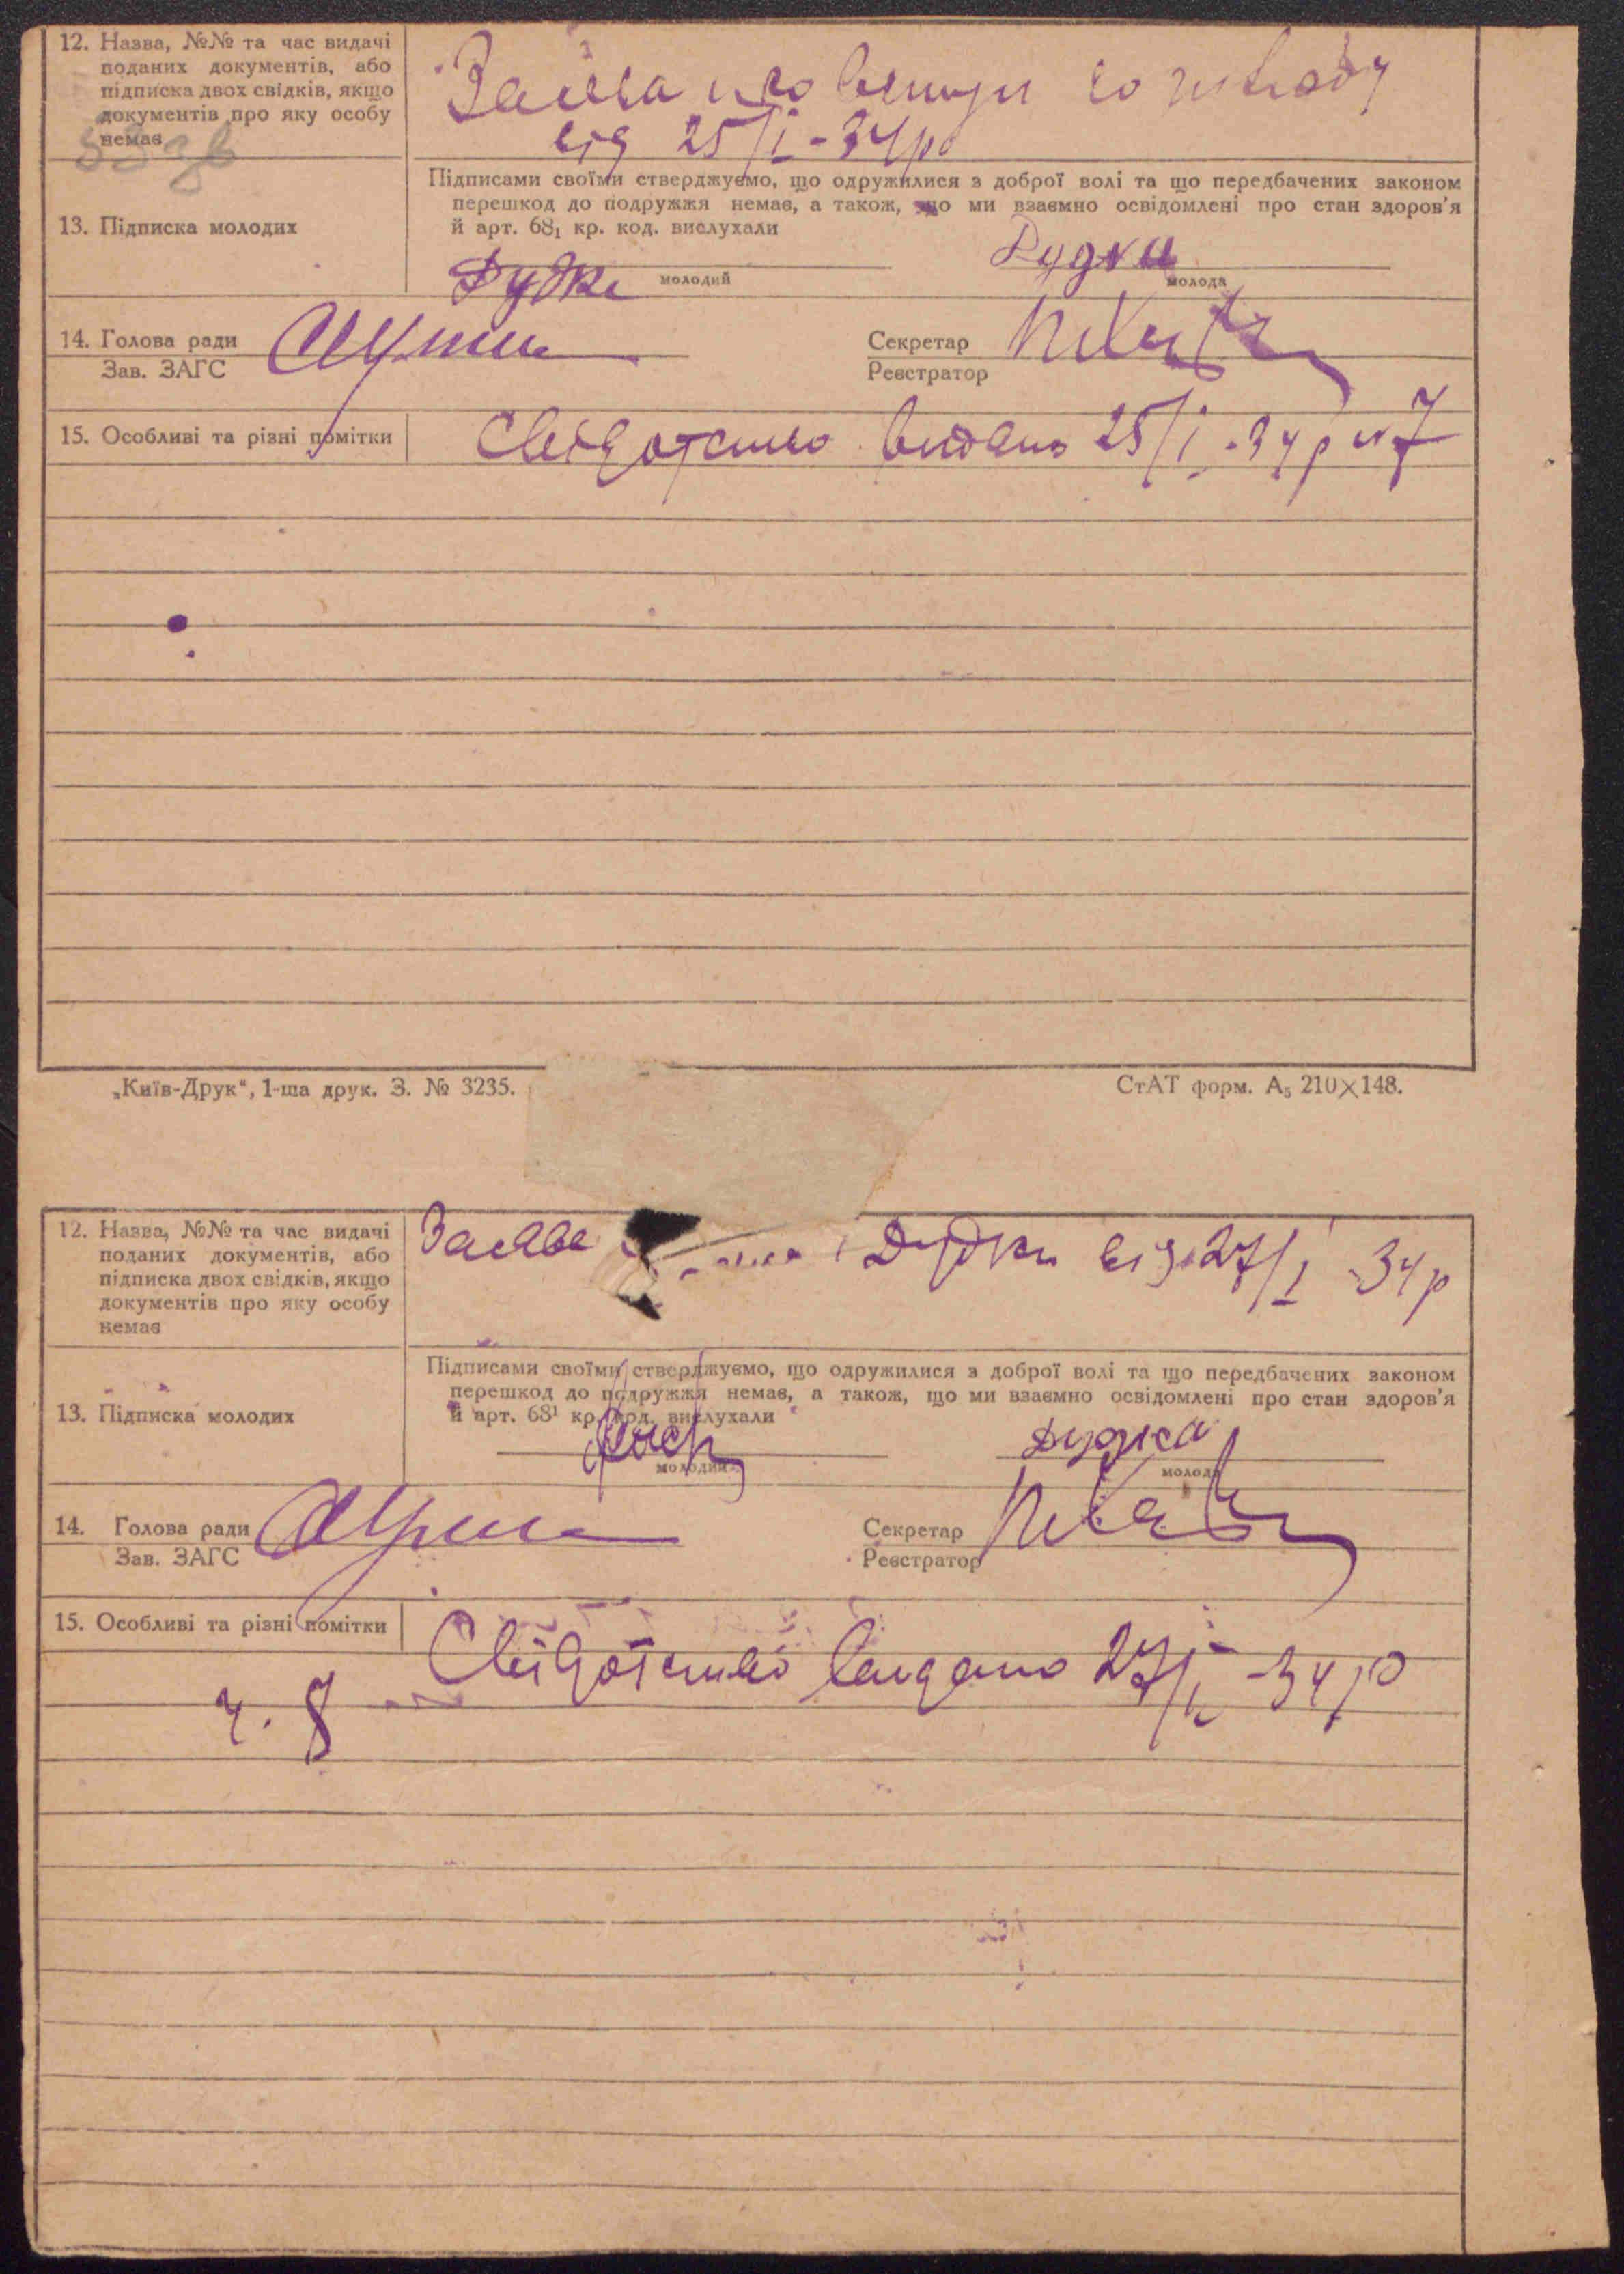 12. Назва, №№ та час видачі
поданих документів, або
підписка двох свідків, якщо
документів про яку особу
немає
Заява про вступ до шлюбу
від 25/I - 34 р
13. Підписка молодих
Підписами своїми стверджуємо, що одружилися з доброї волі та що передбачених законом
перешкод до подружжя немає, а також, що ми взаємно освідомлені про стан здоров'я
й арт. 68₁ кр. код. вислухали
Дудка
молодий
Дудка
молода
14. Голова ради
Зав. ЗАГС
Секретар
Реєстратор
15. Особливі та різні помітки
Свідотство видано 25/I - 34 р № 7
„Київ-Друк“, 1-ша друк. З. № 3235.
СтАТ форм. А₅ 210×148.
12. Назва, №№ та час видачі
поданих документів, або
підписка двох свідків, якщо
документів про яку особу
немає
Заява і Дудки від 27/I - 34 р
13. Підписка молодих
Підписами своїми стверджуємо, що одружилися з доброї волі та що передбачених законом
перешкод до подружжя немає, а також, що ми взаємно освідомлені про стан здоров'я
й арт. 68¹ кр. код. вислухали
молодий
Дудка
молода
14. Голова ради
Зав. ЗАГС
Секретар
Реєстратор
15. Особливі та різні помітки
Свідотство видано 27/I - 34 р
ч. 8